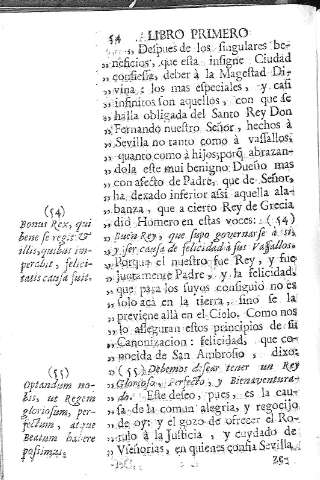 54 LIBRO PRIMERO
,, Despues de los singulares be-
,, neficios, que esta insigne Ciudad
,, confiessa, deber à la Magestad Di-
,, vina: los mas especiales, y casi
,, infinitos son aquellos, con que se
,, halla obligada del Santo Rey Don
,, Fernando nuestro Señor, hechos à
,, Sevilla no tanto como à vassallos,
,, quanto como à hijos, porq̃ abrazan-
,, dola este mui benigno Dueño mas
,, con afecto de Padre, que de Señor,
,, ha dexado inferior assi aquella ala-
,, banza, que a cierto Rey de Grecia
,, diò Homero en estas voces: (54)
,, Buen Rey, que supo governarse à sì,
,, y ser causa de felicidad à sus Vassallos.
,, Porque el nuestro fue Rey, y fue
,, juntamente Padre, y la felicidad,
,, que para los suyos consiguiò no es
,, solo acà en la tierra, sino se la
,, previene allà en el Cielo. Como nos
,, lo asseguran estos principios de su
,, Canonizacion: felicidad, que co-
,, nocida de San Ambrosio, dixo:
,, (55) Debemos desear tener un Rey
,, Glorioso, Perfecto, y Bienaventura-
,, do. Este deseo, pues, es la cau-
,, sa de la comun alegria, y regocijo
,, de oy: y el gozo de ofrecer el Ro-
,, tulo à la Justicia, y cuydado de
,, Vseñorias, en quienes confia Sevilla,
(54)
Bonus Rex, qui
bene se regit &
illis, quibus im-
perabit, felici-
tatis causa fuit.
(55)
Optandum no-
bis, ut Regem
gloriosum, per-
fectum, atque
Beatum habere
possimus.